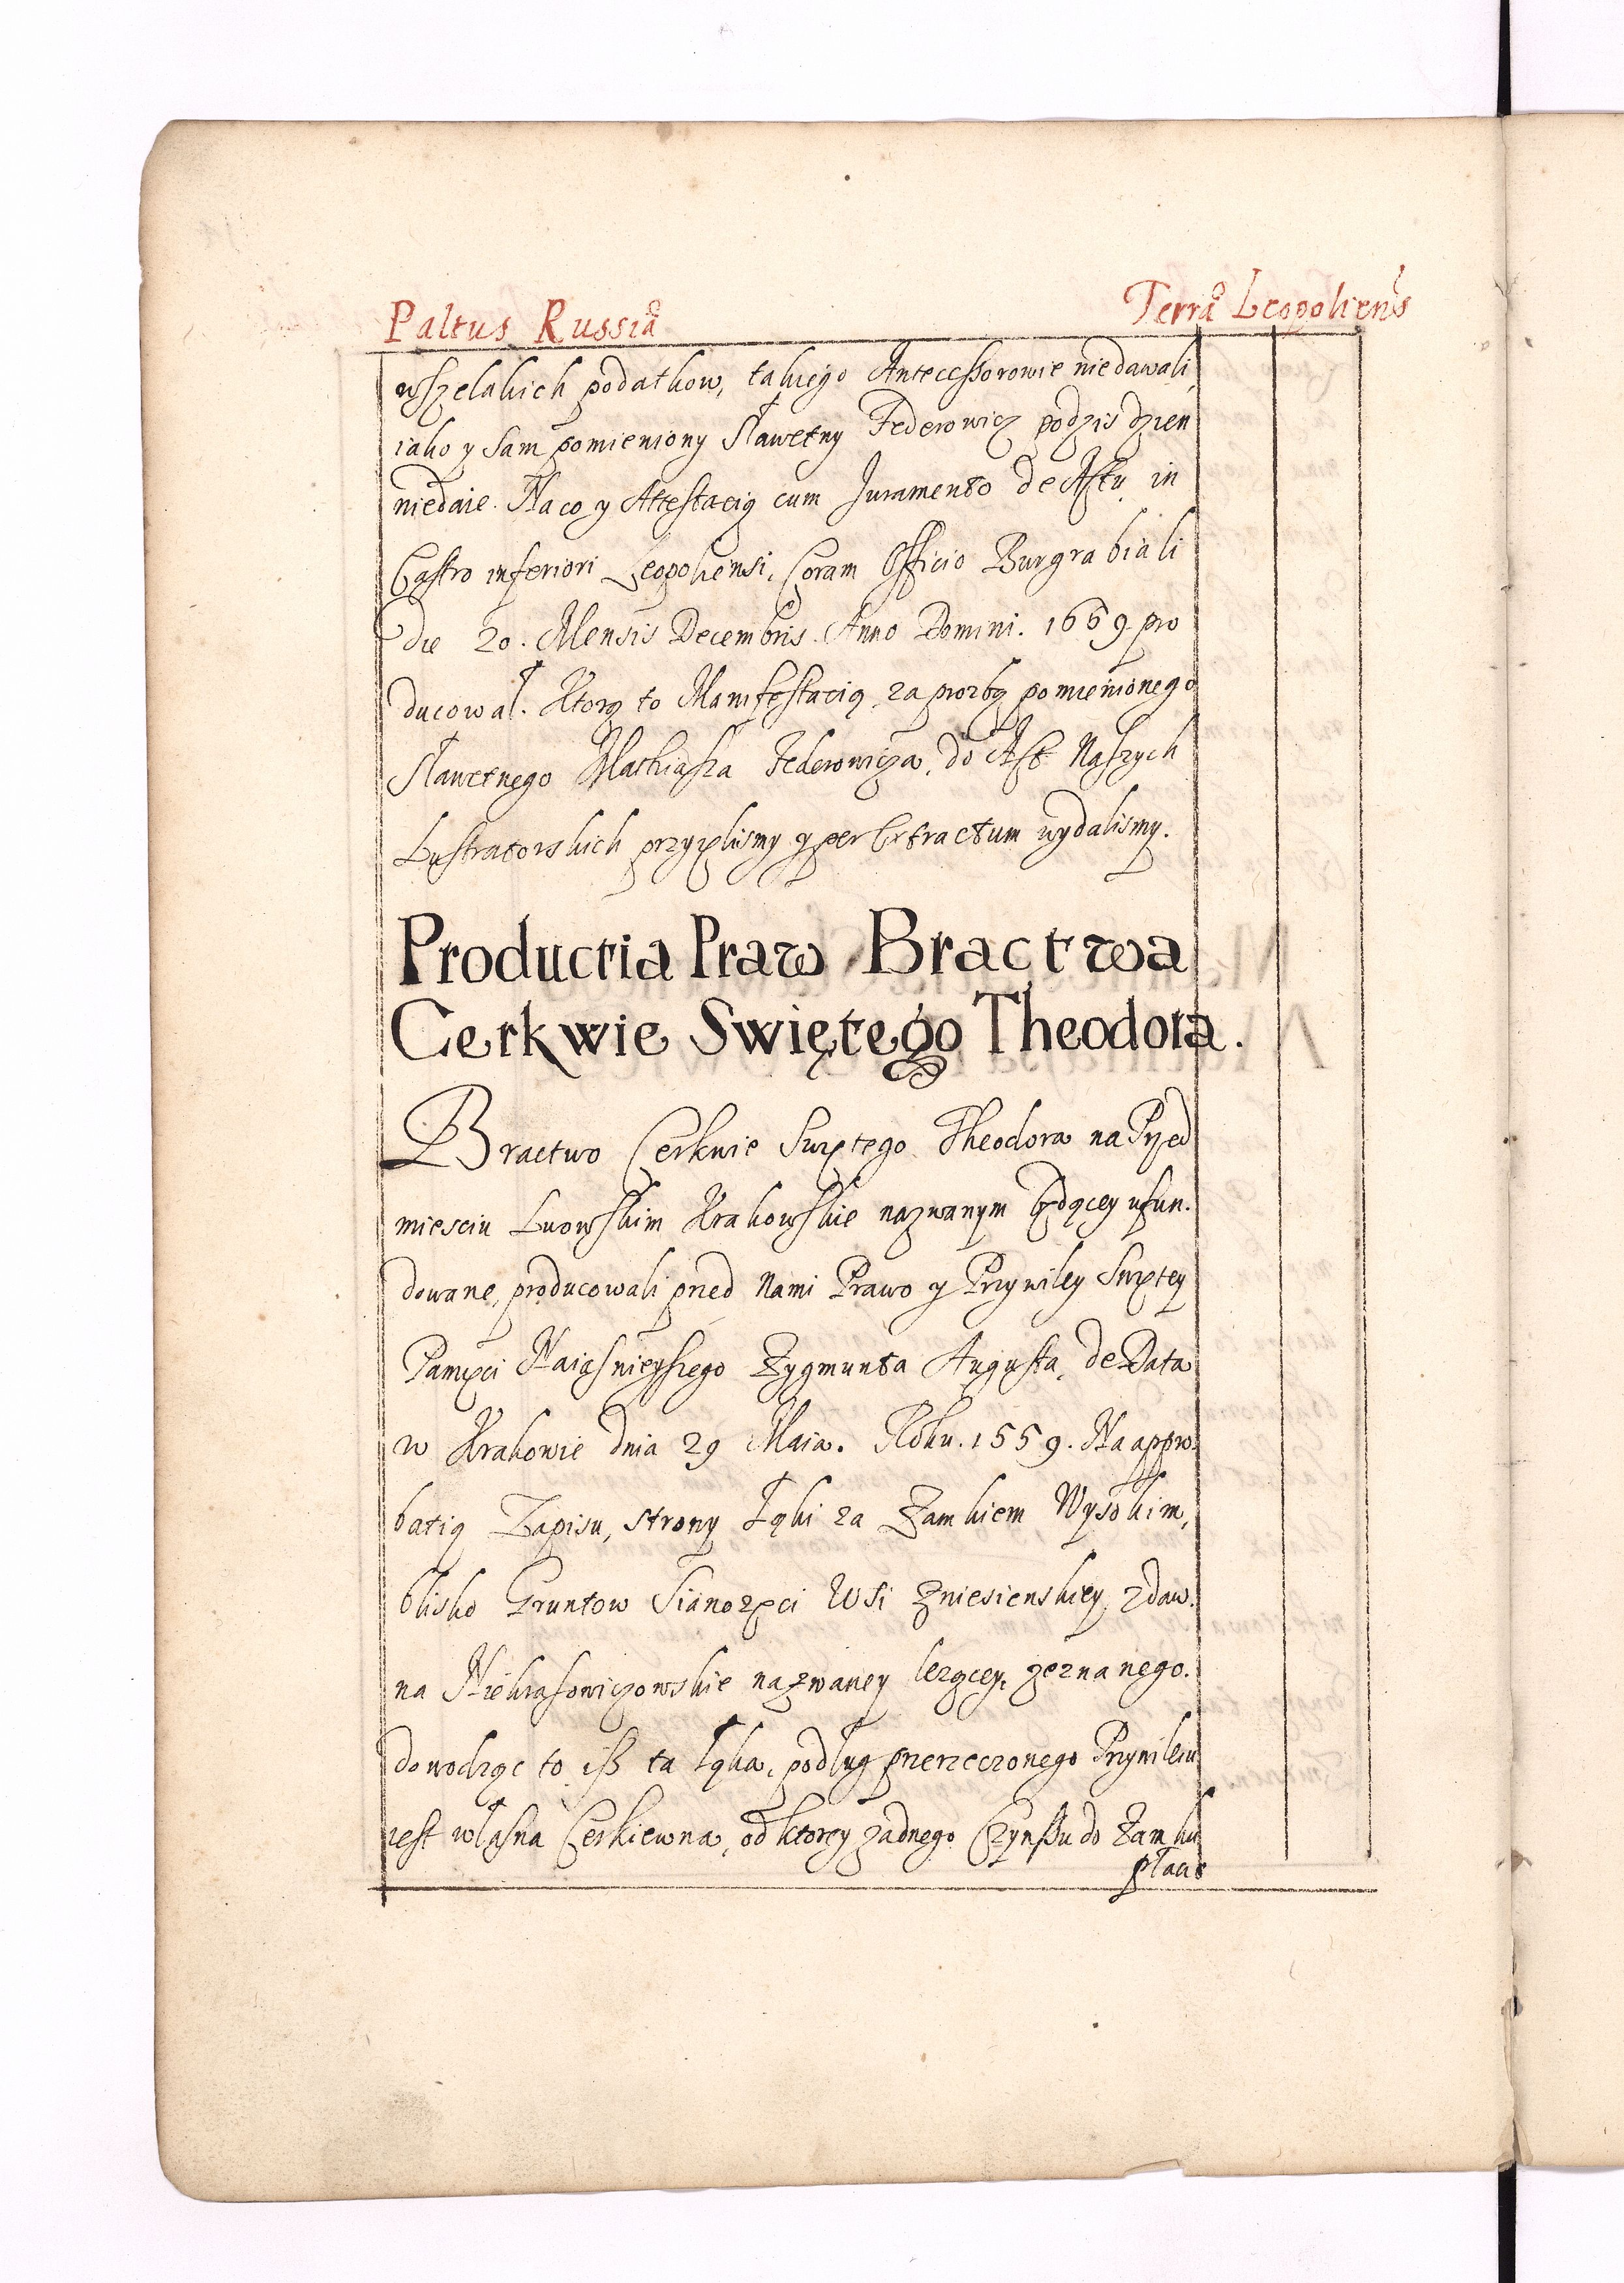 Paltus Russiæ
Terræ Leopoliens
wszelakich podatkow, takiego Antecessorowie niedawali,
iako y sam pomieniony Sławetny Federowicz podzis dzien
niedaie. Na co y Attestacią cum Juramento de Actu in
Castro inferiori Leopoliensi, Coram Officio Burgrabiali
die 20. Mensis Decembris. Anno Domini. 1659. pro
ducował. Ktorą to Manifestacią, za prozbą pomienionego
Sławetnego Mathiasza Federowicza, do Akt Naszych
Lustratorskich przyięlismy y per Extractum wydalismy.
Productia Praw Bractwa
Cerkwie Swiętego Theodora.
Bractwo Cerkwie Swiętego Theodora na Przed
miesciu Lwowskim Krakowskie nazwanym będącey ufun.
dowane, producowali przed Nami Prawo y Przywiley Swiętey
Pamięci Naiasnieyszego Zygmunta Augusta, de Data
w Krakowie dnia 29 Maia. Roku. 1559. Na appro.
batią Zapisu, strony Łąki za Zamkiem Wysokim,
blisko Gruntow Sianozęci Wsi Zniesienskiey, zdaw.
na Niekrasowiczowskie nazwaney lezącey, zeznanego.
dowodząc to iß ta Łąka, podług przerzeczonego Przywileiu
iest własna Cerkiewna, od ktorey zadnego Czynßu do Zamku
płacic